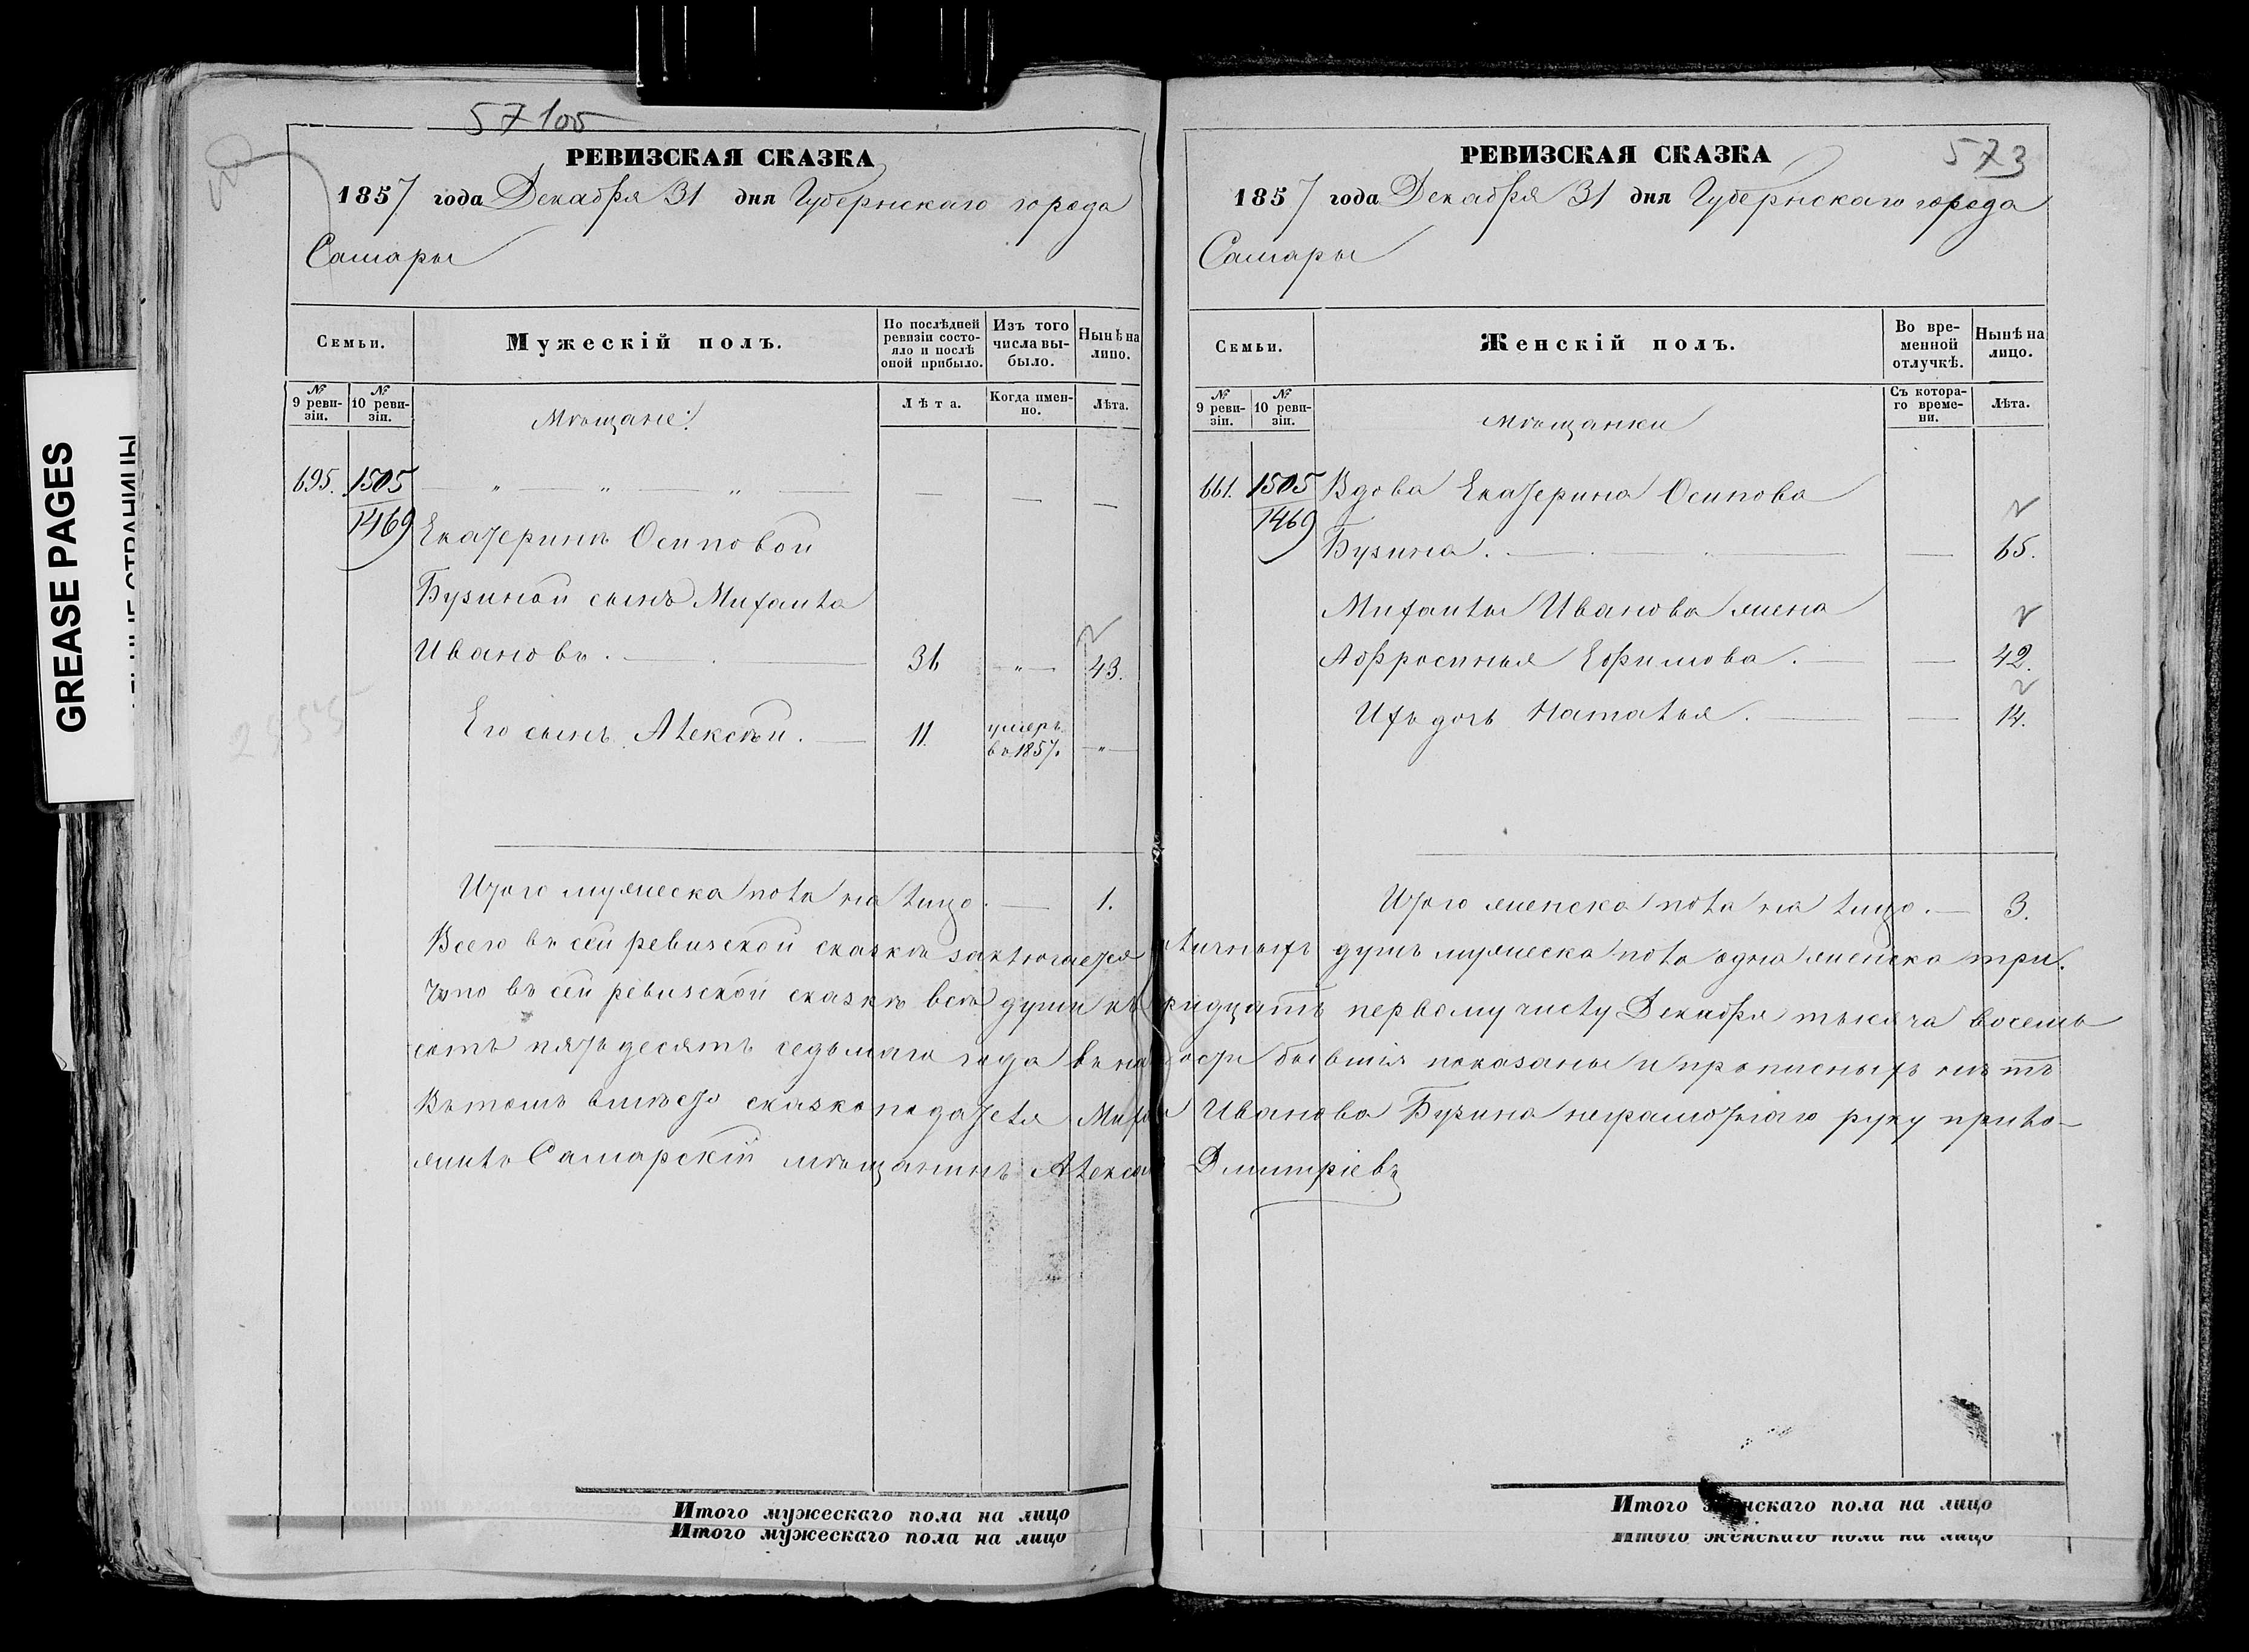 57 105
РЕВИЗСКАЯ СКАЗКА
1857 года Декабря 31 дня Губернскаго города
Самары
Семьи.
Мужескій полъ.
По послѣдней ревизіи состояло и послѣ оной прибыло.
Изъ того числа выбыло.
Нынѣ на лицо.
№ 9 ревизіи.
№ 10 ревизіи.
Мѣщане:
Лѣта.
Когда именно.
Лѣта.
695. 1505 — „ — „ — „ — — — —
1469 Екатерины Осиповой
Бузиной сынъ Михайла
Ивановъ. — 31 — „ — 43.
Его сынъ Алексѣй. — 11. умеръ въ 1857. — „ —
Итого мужеска пола на лицо. — 1.
573
РЕВИЗСКАЯ СКАЗКА
1857 года Декабря 31 дня Губернскаго города
Самары
Семьи.
Женскій полъ.
Во временной отлучкѣ.
Нынѣ на лицо.
№ 9 ревизіи.
№ 10 ревизіи.
мѣщанки
Съ котораго времени.
Лѣта.
661. 1505 Вдова Екатерина Осипова
1469 Бузина. — — 65.
Михайлы Иванова жена
Аффросинья Ефимова. — — 42.
Ихъ дочь Наталья. — — 14.
Итого женска пола на лицо. — 3.
Всего въ сей ревизской сказкѣ заключается личныхъ душъ мужеска пола одна женска три.
Что въ сей ревизской сказкѣ всѣ души къ тридцать первому числу Декабря тысяча восемь
сотъ пятьдесятъ седьмаго года въ на бывшія показаны и прописныхъ нѣтъ
Въ томъ вмѣсто сказкоподателя Миха Иванова Бузина неграмотнаго руку прило-
жилъ Самарскій мѣщанинъ Алексѣ Дмитріевъ
Итого мужескаго пола на лицо
Итого мужескаго пола на лицо
Итого женскаго пола на лицо
Итого женскаго пола на лицо
GREASE PAGES